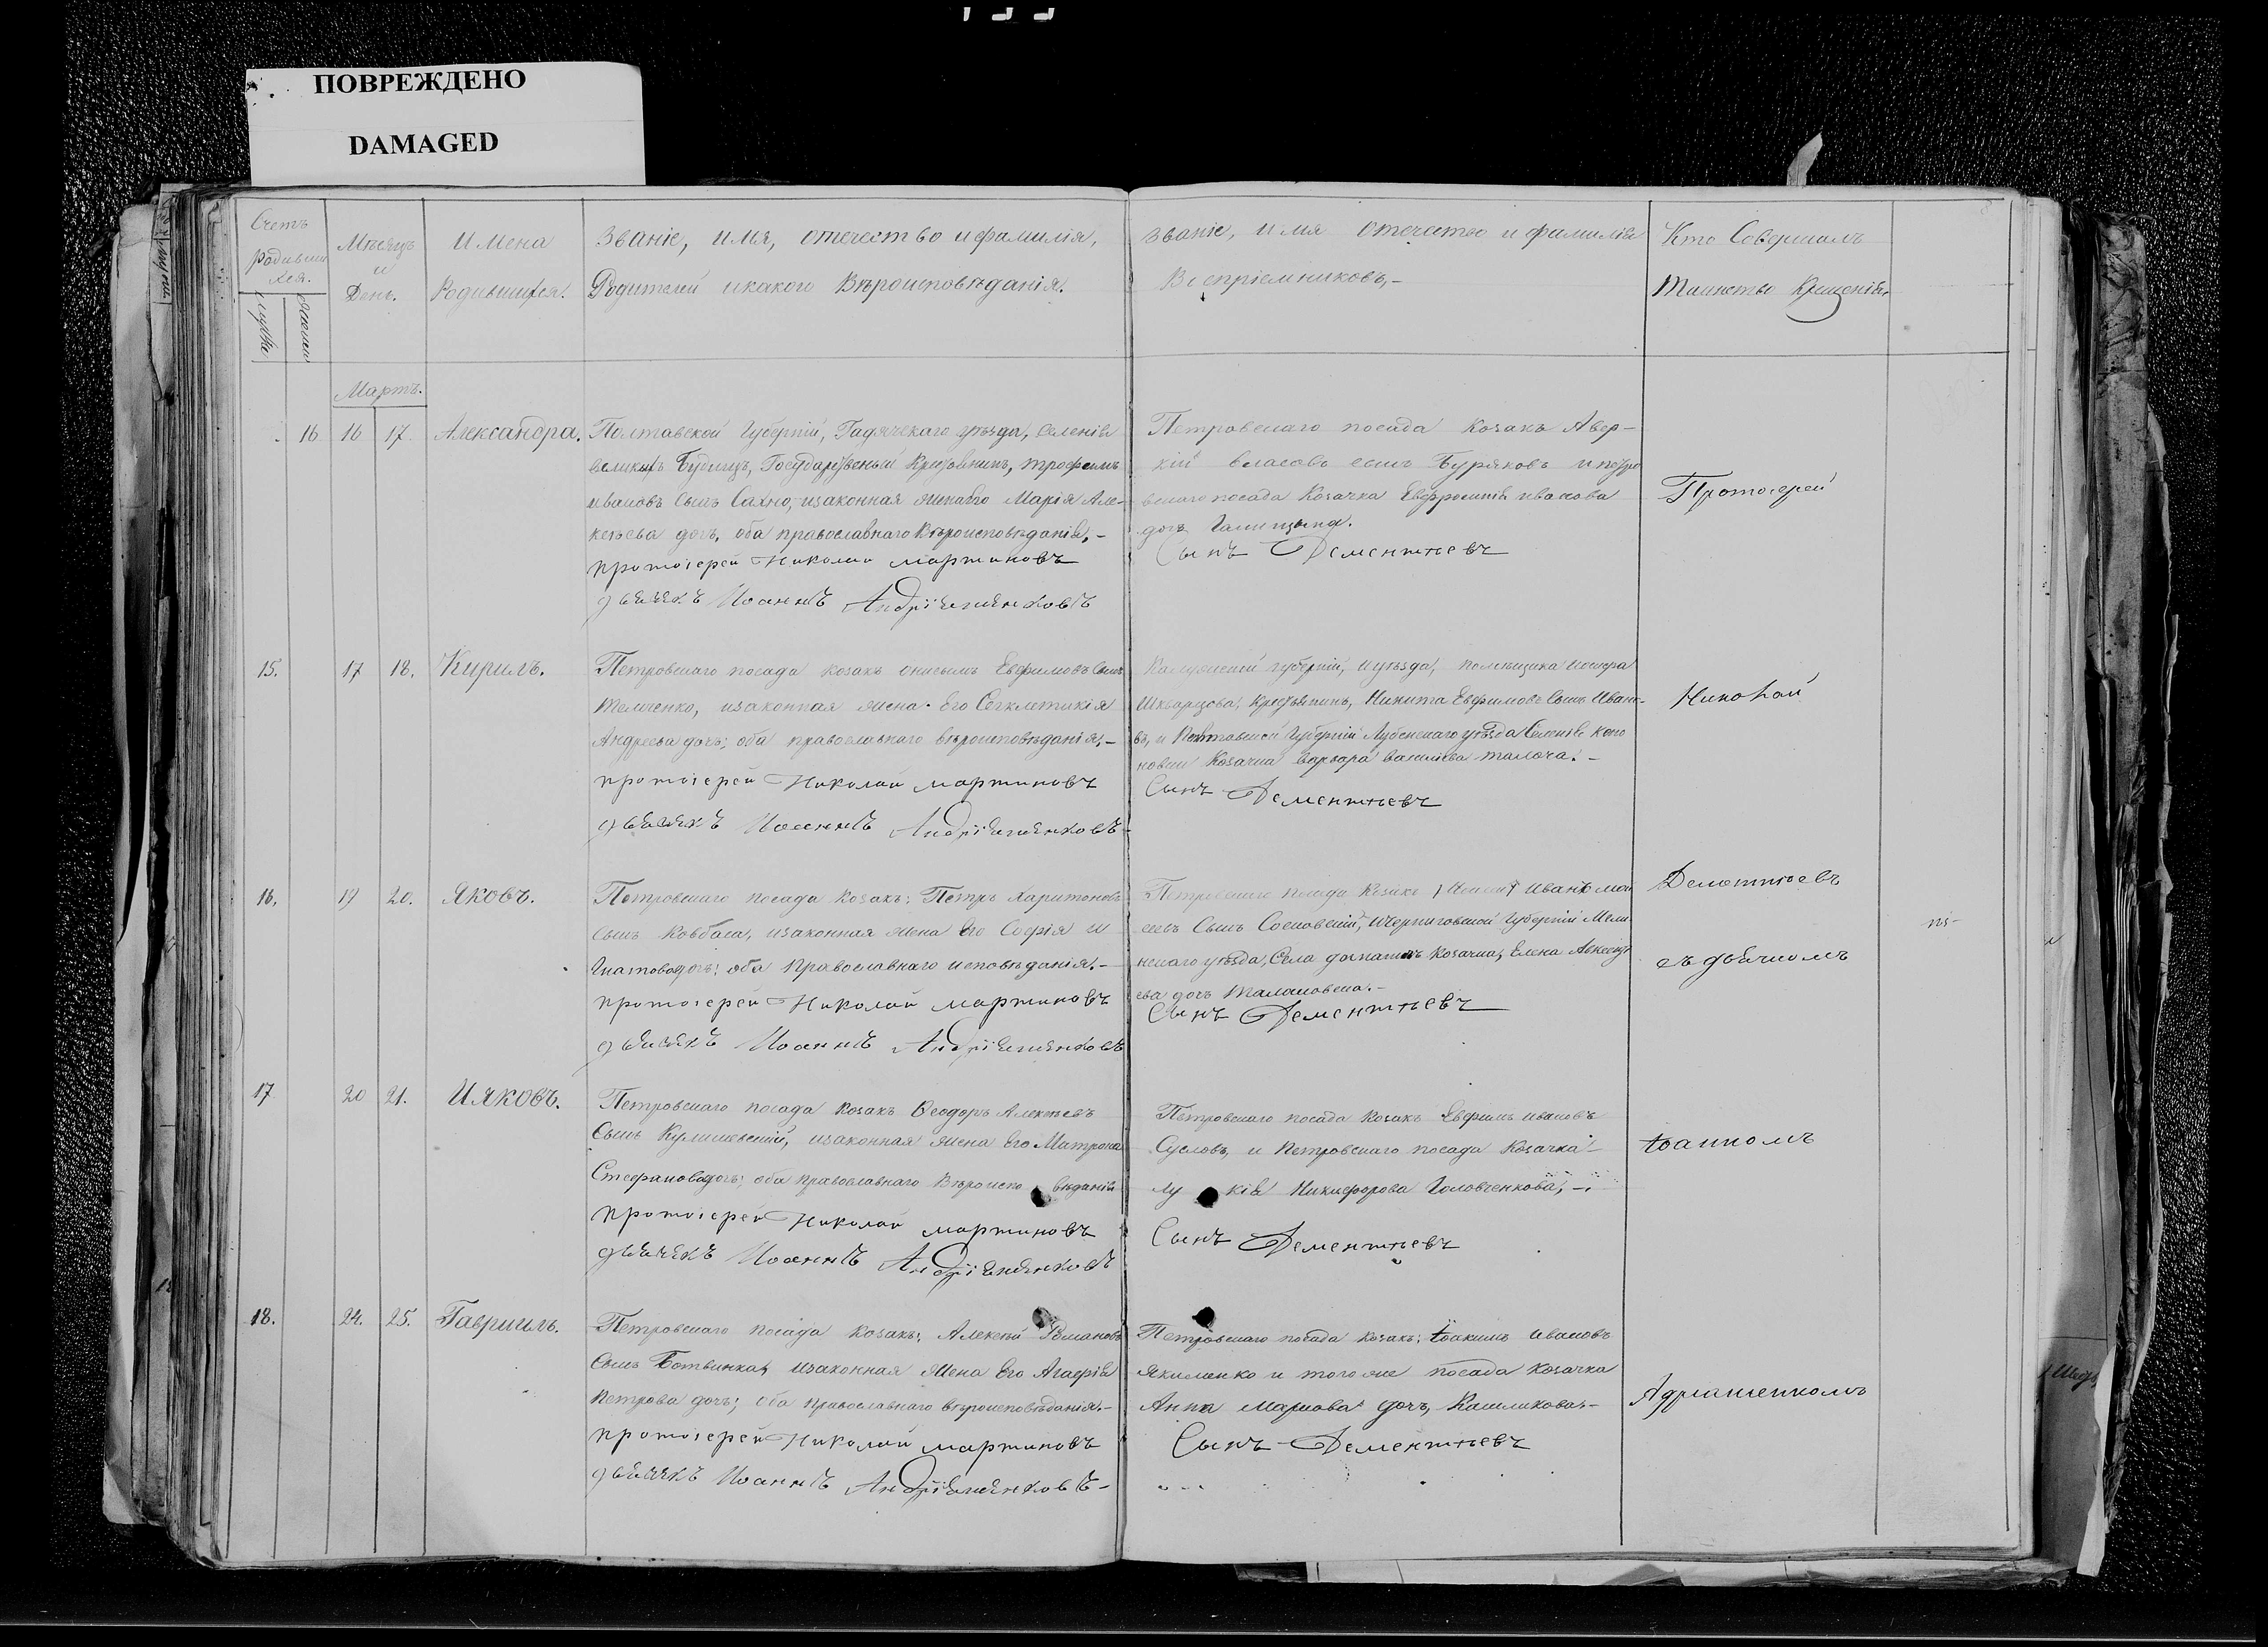 ПОВРЕЖДЕНО
DAMAGED
Счетъ
родивши
хся.
Мѣсяцъ
и
День.
Имена
Родившихся.
Званіе, имя, отечество и фамилія,
Родителей и какого Вѣроисповѣданія.
Званіе, имя отечество и фамилія
Воспріемниковъ,-
Кто Совершалъ
Таинство Крещенія,
Мартъ.
16 16 17 Александра.
Полтавской Губерніи, Гадячскаго уѣзда, селенія
великихъ Будищъ, Государственный
ивановъ Сынъ Сахно, изаконная жена его Марія Але-
ксѣева дочь, оба православнаго Вѣроисповѣданія,-
протоіерей Николай мартиновъ
дьячекъ Иоаннъ
Петровскаго посада козакъ Авер-
кій власовъ сынъ Буряковъ и петро
вскаго посада Козачка Евфросинія иванова
дочь Галицына.
Сынъ Дементьевъ
Протоіерей
15. 17 18. Кирилъ.
Петровскаго посада козакъ онисымъ Евфимовъ Сынъ
Темченко, изаконная жена Его Сегклетикія
Андреева дочь; оба православнаго вѣроисповѣданія,-
протоіерей Николай мартиновъ
дьячекъ Иоаннъ
Калужской губерніи, и уѣзда, помѣщика
Шкварцова, Крестьянинъ, Никита Евфимовъ Сынъ Ивано-
въ, и Полтавской Губерніи Лубенскаго уѣзда Селенія коно
новки Козачка варвара васильева талоча.-
Сынъ Дементьевъ
Николай
16. 19 20. Яковъ.
Петровскаго посада козакъ; Петръ Харитоновъ
Сынъ Ковбаса, изаконная жена Его Софія и
гнатова дочь; оба Православнаго исповѣданія.-
протоіерей Николай мартиновъ
дьячекъ Иоаннъ
Петровскаго посада Козакъ Иванъ мои
сеевъ Сынъ Сосновскій, и Черниговской Губерніи
уѣзда, Села Козачка, Елена
ева дочь
Сынъ Дементьевъ
Дементьевъ
съ дьячкомъ
17 20 21. Ияковъ.
Петровскаго посада Козакъ Ѳеодоръ Алексѣевъ
Сынъ Кулишевскій, изаконная жена Его Матрона
Стефанова дочь; оба православнаго Вѣроиспо вѣданія
протоіерей Николай мартиновъ
дьячекъ Иоаннъ
Петровскаго посада Козакъ Евфимъ ивановъ
Сусловъ, и Петровскаго посада Козачка
лу кія Никифорова Головченкова,-
Сынъ Дементьевъ
Іоанномъ
18. 24. 25. Гавриилъ.
Петровскаго посада козакъ; Алексѣй Романовъ
Сынъ Ботвинка, изаконная жена Его Агафія
Петрова дочь; оба православнаго вѣроисповѣданія.-
протоіерей Николай мартиновъ
дьячекъ Иоаннъ
Петровскаго посада козакъ; Іоакимъ ивановъ
якименко и того же посада козачка
Анна Маркова дочь,
Сынъ Дементьевъ